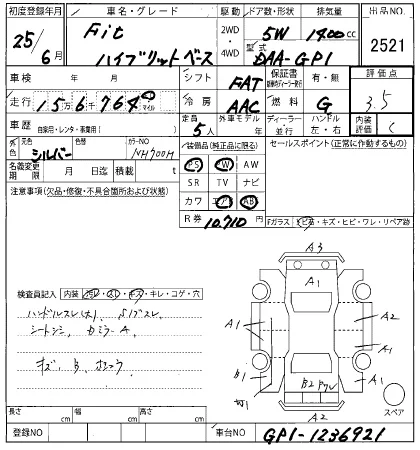 初度登録年月 車名・グレード 駆動 ドア数・形状 排気量 出品NO.
25年 6月 Fit ハイブリットベース 2WD・4WD 5W 1400cc 2521
型式 DAA-GP1
車検 年 月 シフト FAT 保証書 有・無 評価点
走行 15万6千764 マイル 冷房 AAC 燃料 G 3.5
車歴 自家用・レンタ・事業用( ) 定員 5人 外車モデル 年 ディーラー・並行 ハンドル 左・右 内装評価 C
外色 元色 シルバー 色替 カラーNO NH700M 装備品(純正品に限る) セールスポイント(正常に作動するもの)
名義変更期限 月 日迄 積載 t PS PW AW
注意事項(欠品・修復・不具合箇所および状態) SR TV ナビ
カワ エアB AB
R券 10,710円 Fガラス トビ石・キズ・ヒビ・ワレ・リペア跡
A3
A1
検査員記入 内装 汚レ・スレ・キズ・キレ・コゲ・穴
ハンドルスレ(大)
シートシミ
A1 A2
A1
B1 A1
A2
B2
スペア
長さ cm 幅 cm 高さ cm
登録NO 車台NO GP1-1236921